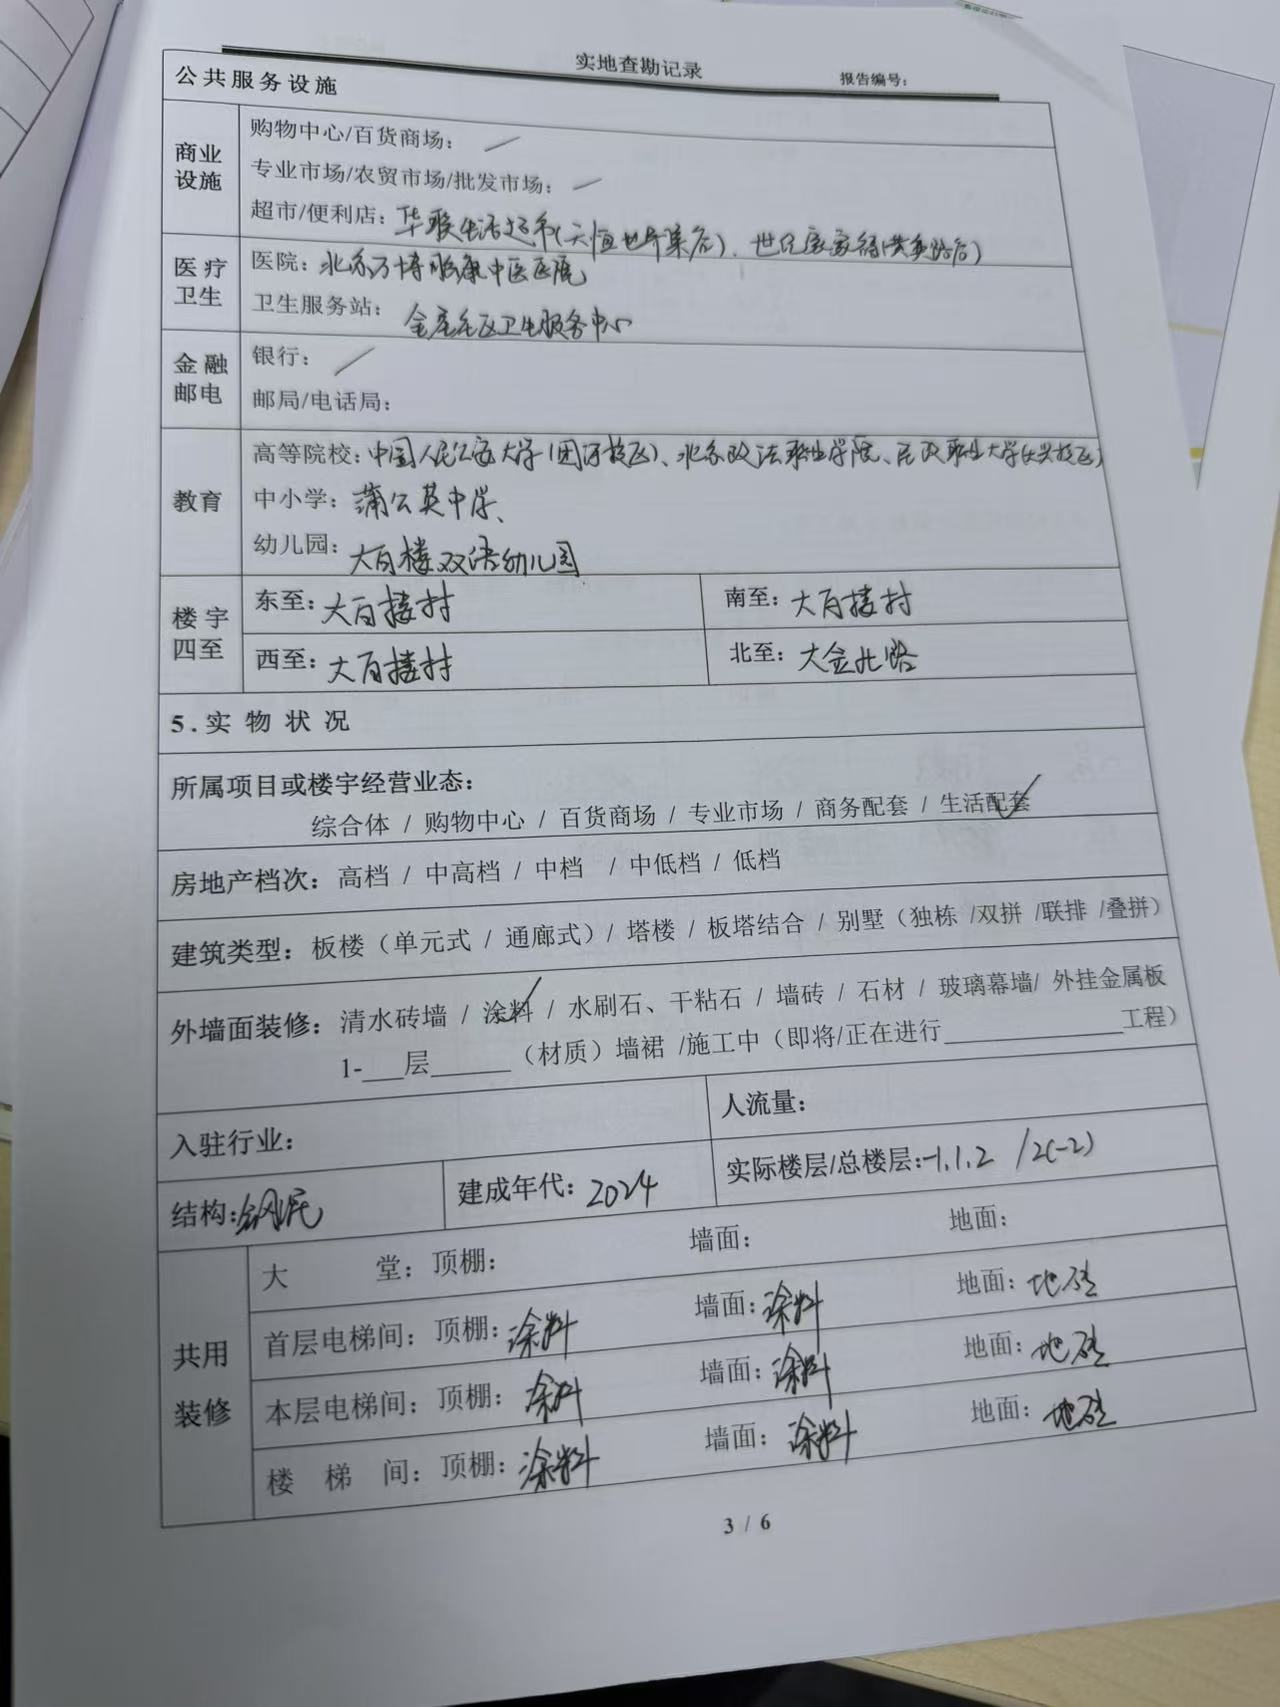 实地查勘记录
报告编号：
公共服务设施
商业设施
购物中心/百货商场： /
专业市场/农贸市场/批发市场： /
超市/便利店：华联生活超市(天恒世界集店)、世纪家家福(店)
医疗卫生
医院：北京万博中医医院
卫生服务站：金星社区卫生服务中心
金融邮电
银行： /
邮局/电话局：
教育
高等院校：中国人民公安大学(团河校区)、北京政法职业学院、民政职业大学(大兴校区)
中小学：蒲公英中学、
幼儿园：大白楼双语幼儿园
楼宇四至
东至：大白楼村
南至：大白楼村
西至：大白楼村
北至：大金北路
5.实物状况
所属项目或楼宇经营业态：
综合体 / 购物中心 / 百货商场 / 专业市场 / 商务配套 / 生活配套 ✓
房地产档次：高档 / 中高档 / 中档 / 中低档 / 低档
建筑类型：板楼（单元式 / 通廊式）/ 塔楼 / 板塔结合 / 别墅（独栋 /双拼 /联排 /叠拼）
外墙面装修：清水砖墙 / 涂料 ✓ / 水刷石、干粘石 / 墙砖 / 石材 / 玻璃幕墙/ 外挂金属板
1-___层______（材质）墙裙 /施工中（即将/正在进行______________工程）
入驻行业：
人流量：
结构：钢混
建成年代：2024
实际楼层/总楼层：-1.1.2 /2(-2)
共用装修
大 堂：顶棚： 墙面： 地面：
首层电梯间：顶棚：涂料 墙面：涂料 地面：地砖
本层电梯间：顶棚：涂料 墙面：涂料 地面：地砖
楼 梯 间：顶棚：涂料 墙面：涂料 地面：地砖
3 / 6